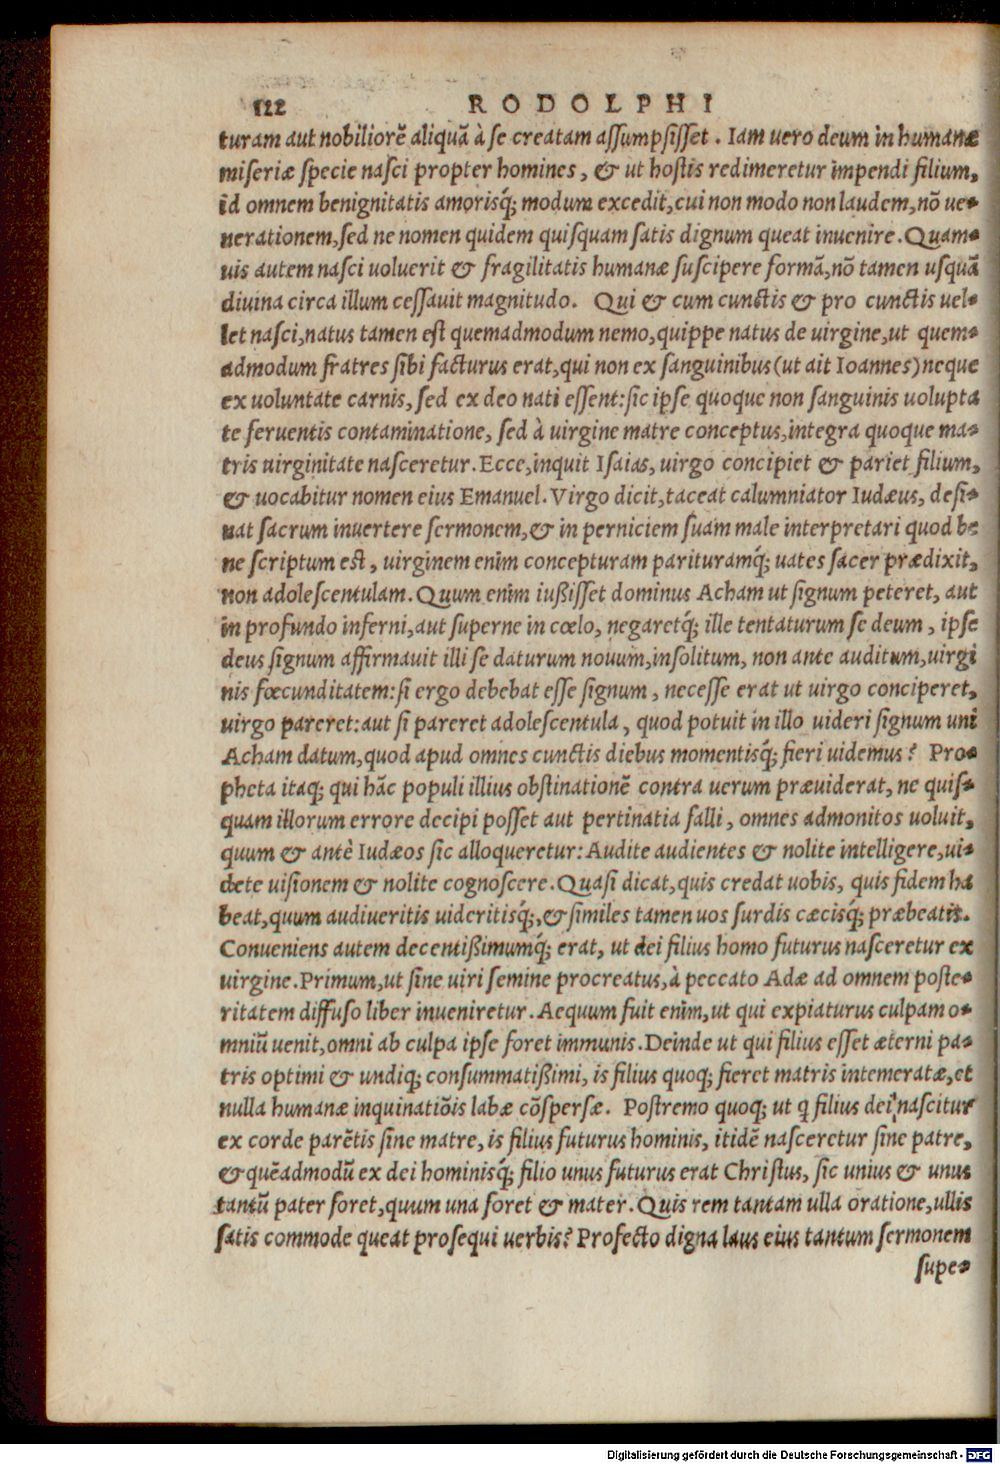 122 RODOLPHI
turam aut nobiliorē aliquā à se creatam assumpsisset. Iam uero deum in humanæ
miseriæ specie nasci propter homines, & ut hostis redimeretur impendi filium,
id omnem benignitatis amorisq́; modum excedit, cui non modo non laudem, nō ue-
nerationem, sed ne nomen quidem quisquam satis dignum queat inuenire. Quam-
uis autem nasci uoluerit & fragilitatis humanæ suscipere formā, nō tamen usquā
diuina circa illum cessauit magnitudo. Qui & cum cunctis & pro cunctis uel-
let nasci, natus tamen est quemadmodum nemo, quippe natus de uirgine, ut quem-
admodum fratres sibi facturus erat, qui non ex sanguinibus (ut ait Ioannes) neque
ex uoluntate carnis, sed ex deo nati essent: sic ipse quoque non sanguinis uolupta
te feruentis contaminatione, sed à uirgine matre conceptus, integra quoque ma-
tris uirginitate nasceretur. Ecce, inquit Isaias, uirgo concipiet & pariet filium,
& uocabitur nomen eius Emanuel. Virgo dicit, taceat calumniator Iudæus, desi-
nat sacrum inuertere sermonem, & in perniciem suam male interpretari quod be
ne scriptum est, uirginem enim concepturam parituramq́; uates sacer prædixit,
non adolescentulam. Quum enim iußisset dominus Acham ut signum peteret, aut
in profundo inferni, aut superne in cœlo, negaretq́; ille tentaturum se deum, ipse
deus signum affirmauit illi se daturum nouum, insolitum, non ante auditum, uirgi
nis fœcunditatem: si ergo debebat esse signum, necesse erat ut uirgo conciperet,
uirgo pareret: aut si pareret adolescentula, quod potuit in illo uideri signum uni
Acham datum, quod apud omnes cunctis diebus momentisq́; fieri uidemus? Pro-
pheta itaq; qui hāc populi illius obstinationē contra uerum præuiderat, ne quis-
quam illorum errore decipi posset aut pertinatia falli, omnes admonitos uoluit,
quum & antè Iudæos sic alloqueretur: Audite audientes & nolite intelligere, ui-
dete uisionem & nolite cognoscere. Quasi dicat, quis credat uobis, quis fidem ha
beat, quum audiueritis uideritisq́;, & similes tamen uos surdis cæcisq́; præbeatis.
Conueniens autem decentißimumq́; erat, ut dei filius homo futurus nasceretur ex
uirgine. Primum, ut sine uiri semine procreatus, à peccato Adæ ad omnem poste-
ritatem diffuso liber inueniretur. Aequum fuit enim, ut qui expiaturus culpam o-
mniū uenit, omni ab culpa ipse foret immunis. Deinde ut qui filius esset æterni pa-
tris optimi & undiq; consummatißimi, is filius quoq; fieret matris intemeratæ, et
nulla humanæ inquinatiōis labæ cōspersæ. Postremo quoq; ut q filius dei nascitur
ex corde parētis sine matre, is filius futurus hominis, itidē nasceretur sine patre,
& quēadmodū ex dei hominisq́; filio unus futurus erat Christus, sic unius & unus
tantū pater foret, quum una foret & mater. Quis rem tantam ulla oratione, ullis
satis commode queat prosequi uerbis? Profecto digna laus eius tantum sermonem
supe-
Digitalisierung gefördert durch die Deutsche Forschungsgemeinschaft - DFG